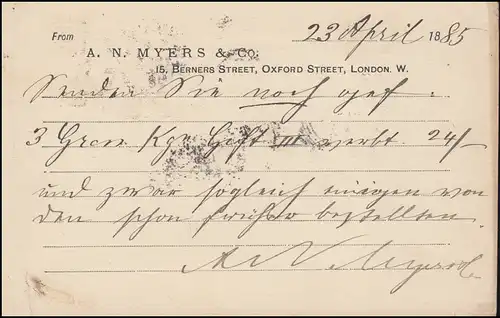 From 23 April 1885
A. N. MYERS & Co.
15, BERNERS STREET, OXFORD STREET, LONDON. W.
Senden Sie noch
3 Heft III 24/-
und zwar sogleich einigen von
den schon früher bestellten.
A N Myers & Co